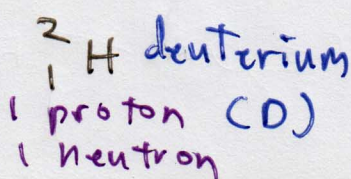 ²₁H deuterium
1 proton (D)
1 neutron